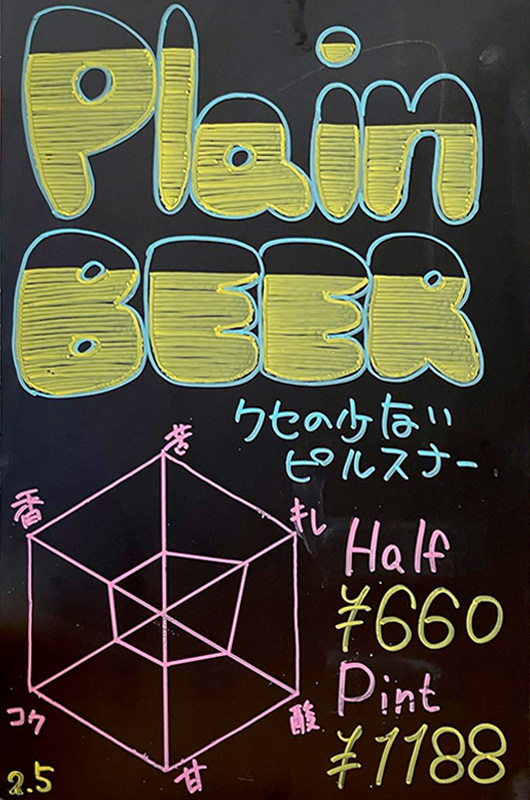 Plain
BEER
クセの少ない
ピルスナー
苦
香
キレ
Half
¥660
Pint
コク
酸
¥1188
甘
2.5